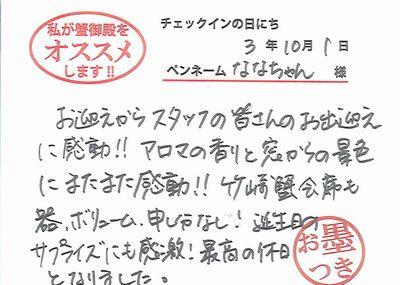 私が蟹御殿を
オススメ
します!!
チェックインの日にち
3年10月1日
ペンネーム ななちゃん 様
お迎えからスタッフの皆さんのお出迎え
に感動!! アロマの香りと窓からの景色
にまたまた感動!! 竹崎蟹会席も
器、ボリューム、申し分なし! 誕生日の
サプライズにも感激! 最高の休日
となりました。
お墨
つき